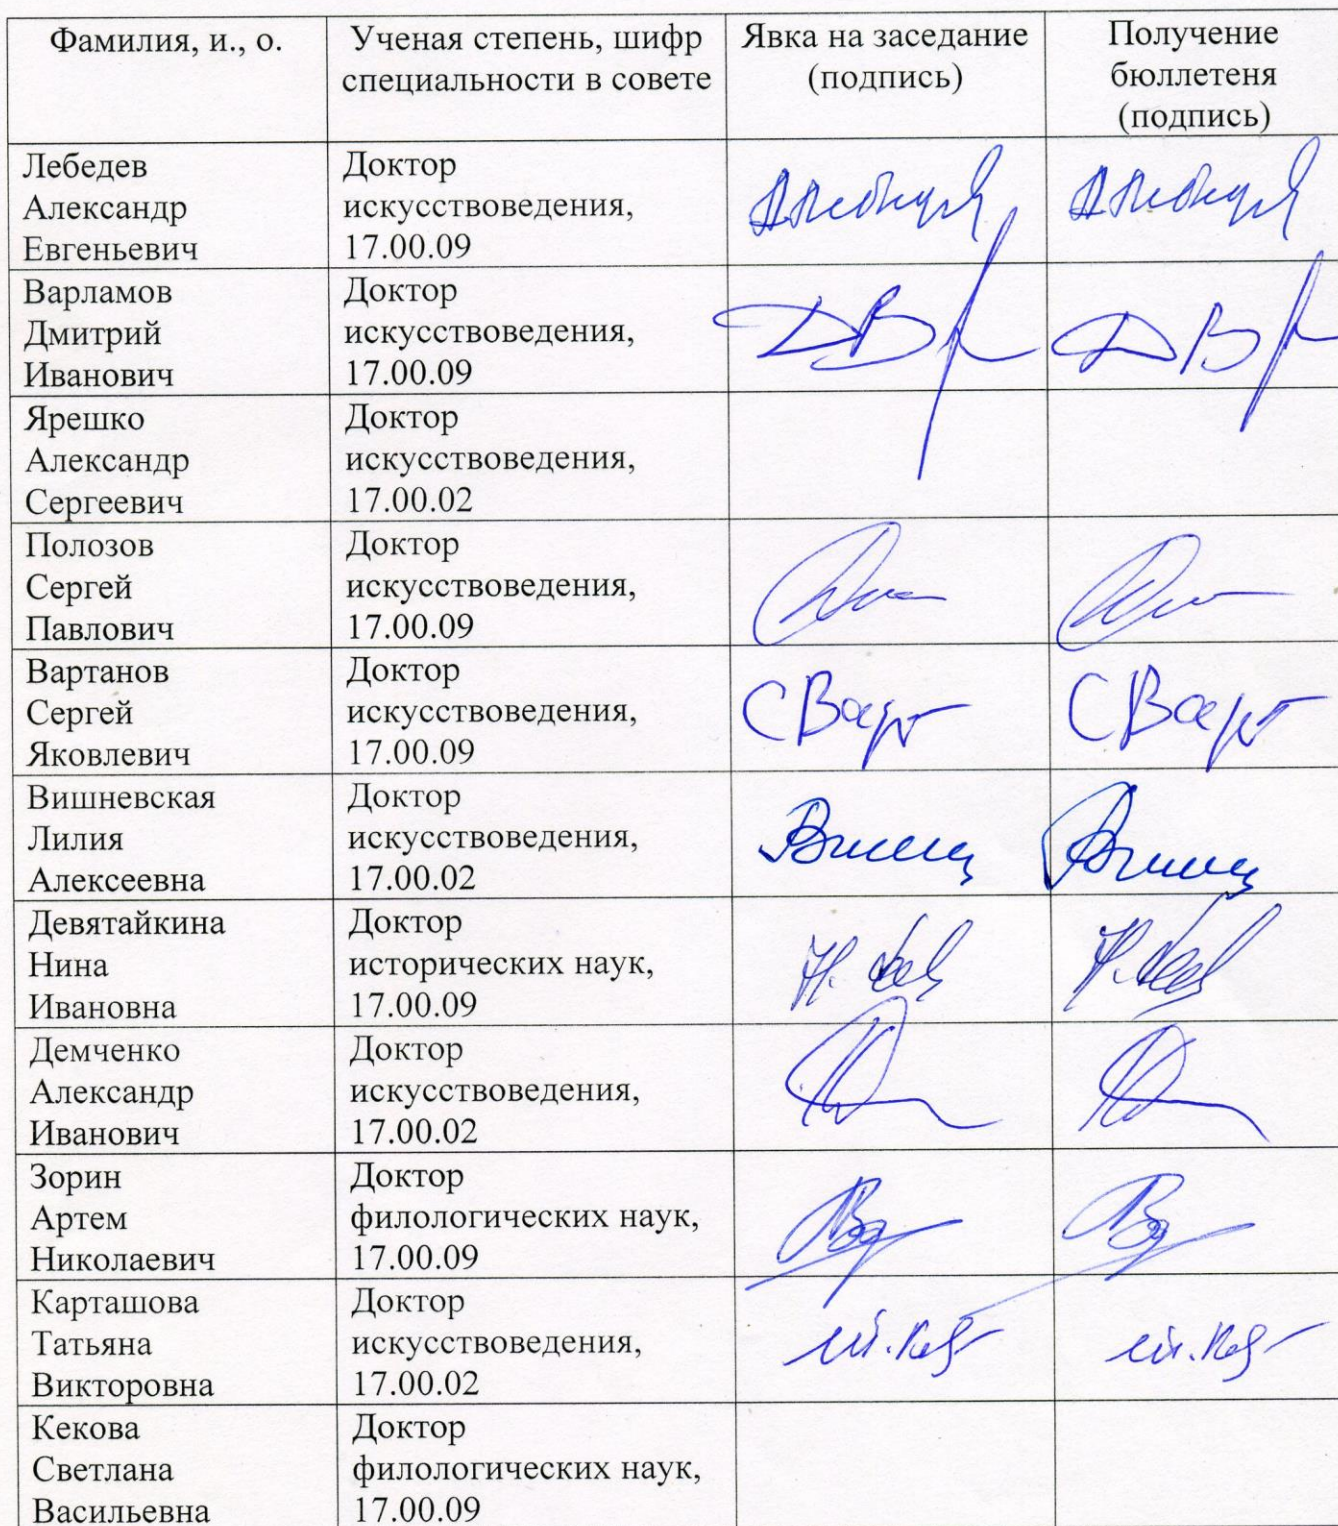 Фамилия, и., о.
Ученая степень, шифр
специальности в совете
Явка на заседание
(подпись)
Получение
бюллетеня
(подпись)
Лебедев
Александр
Евгеньевич
Доктор
искусствоведения,
17.00.09
Варламов
Дмитрий
Иванович
Доктор
искусствоведения,
17.00.09
Ярешко
Александр
Сергеевич
Доктор
искусствоведения,
17.00.02
Полозов
Сергей
Павлович
Доктор
искусствоведения,
17.00.09
Вартанов
Сергей
Яковлевич
Доктор
искусствоведения,
17.00.09
Вишневская
Лилия
Алексеевна
Доктор
искусствоведения,
17.00.02
Девятайкина
Нина
Ивановна
Доктор
исторических наук,
17.00.09
Демченко
Александр
Иванович
Доктор
искусствоведения,
17.00.02
Зорин
Артем
Николаевич
Доктор
филологических наук,
17.00.09
Карташова
Татьяна
Викторовна
Доктор
искусствоведения,
17.00.02
Кекова
Светлана
Васильевна
Доктор
филологических наук,
17.00.09